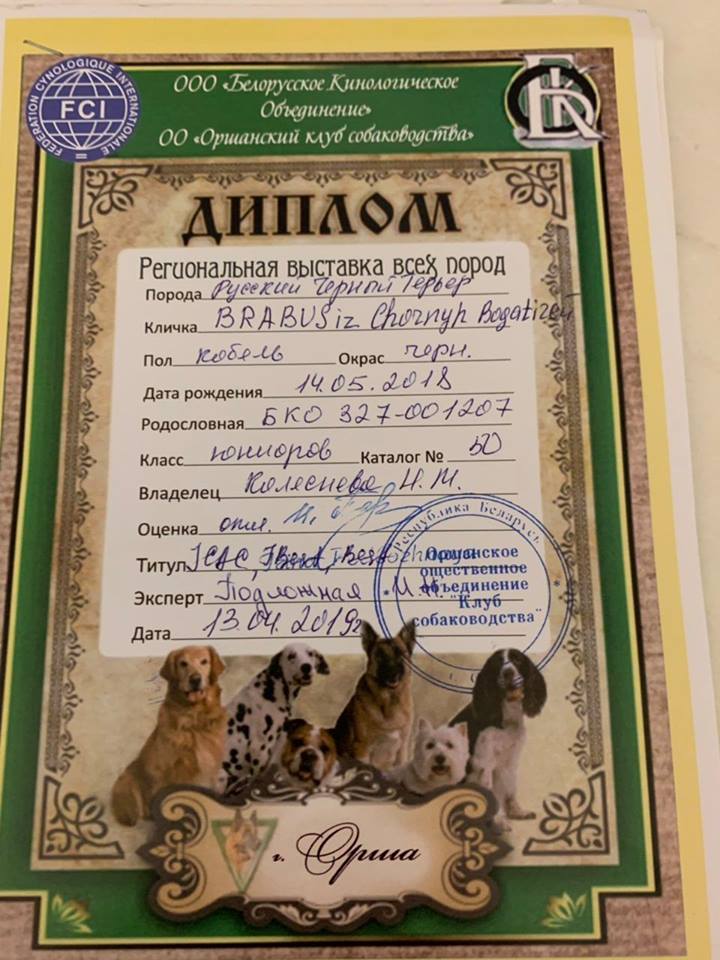 FEDERATION CYNOLOGIQUE INTERNATIONALE
FCI
ООО «Белорусское Кинологическое
Объединение»
ОО «Оршанский клуб собаководства»
ДИПЛОМ
Региональная выставка всех пород
Порода Русский Черный Терьер
Кличка BRABUS iz Chornyh Bogatirey
Пол кобель Окрас черн.
Дата рождения 14.05.2018
Родословная БКО 327-001207
Класс юниоров Каталог № 50
Владелец Н.М.
Оценка отл.
Титул JCAC,
Эксперт Подложная М.Н.
Дата 13.04.2019г
Республика Беларусь
Оршанское
общественное
объединение
"Клуб
собаководства"
г. Орша